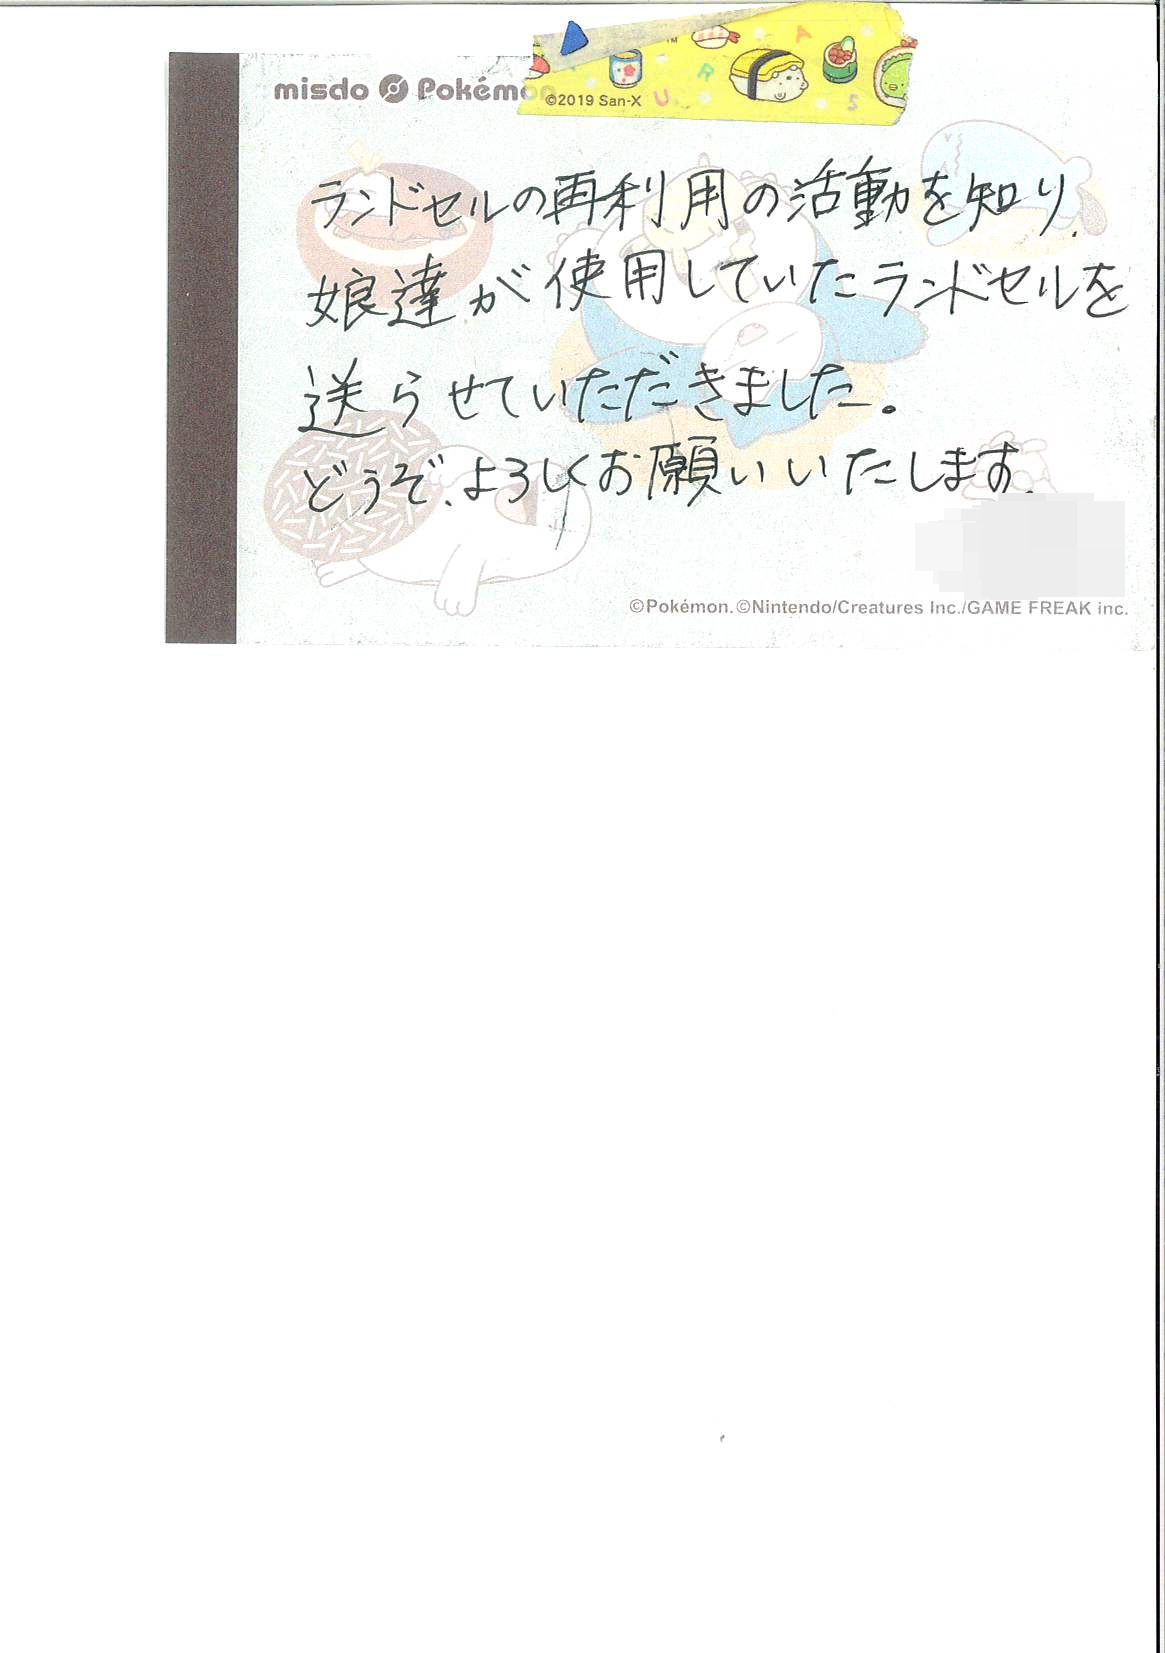 misdo Pokémon
TM
A
R
©2019 San-X
U
S
ランドセルの再利用の活動を知り、
娘達が使用していたランドセルを
送らせていただきました。
どうぞ、よろしくお願いいたします。
©Pokémon. ©Nintendo/Creatures Inc./GAME FREAK inc.